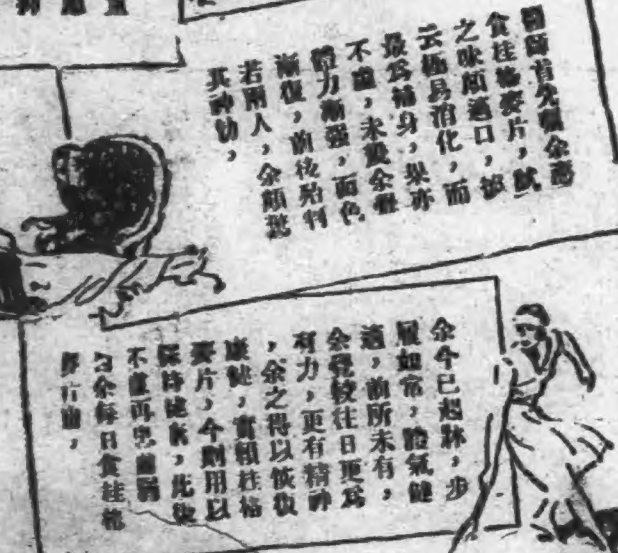 醫師首先囑余應
食桂格麥片，試
之味頗適口，據
云極易消化，而
最為補身，果亦
不虛，未幾余覺
體力漸強，面色
漸復，前後殆判
若兩人，余頗驚
其神効，
余今已起牀，步
履如常，體氣健
適，前所未有，
余覺較往日更為
有力，更有精神
，余之得以恢復
康健，實賴桂格
麥片，今則用以
保持健康，此後
不虛再患虛弱
因余每日食桂格
麥片也，